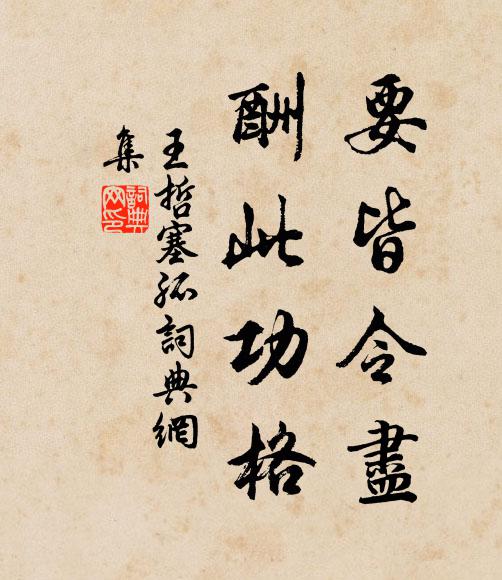 要皆令盡
酬此功格
王哲塞孤詞典網
集
詞典
网印